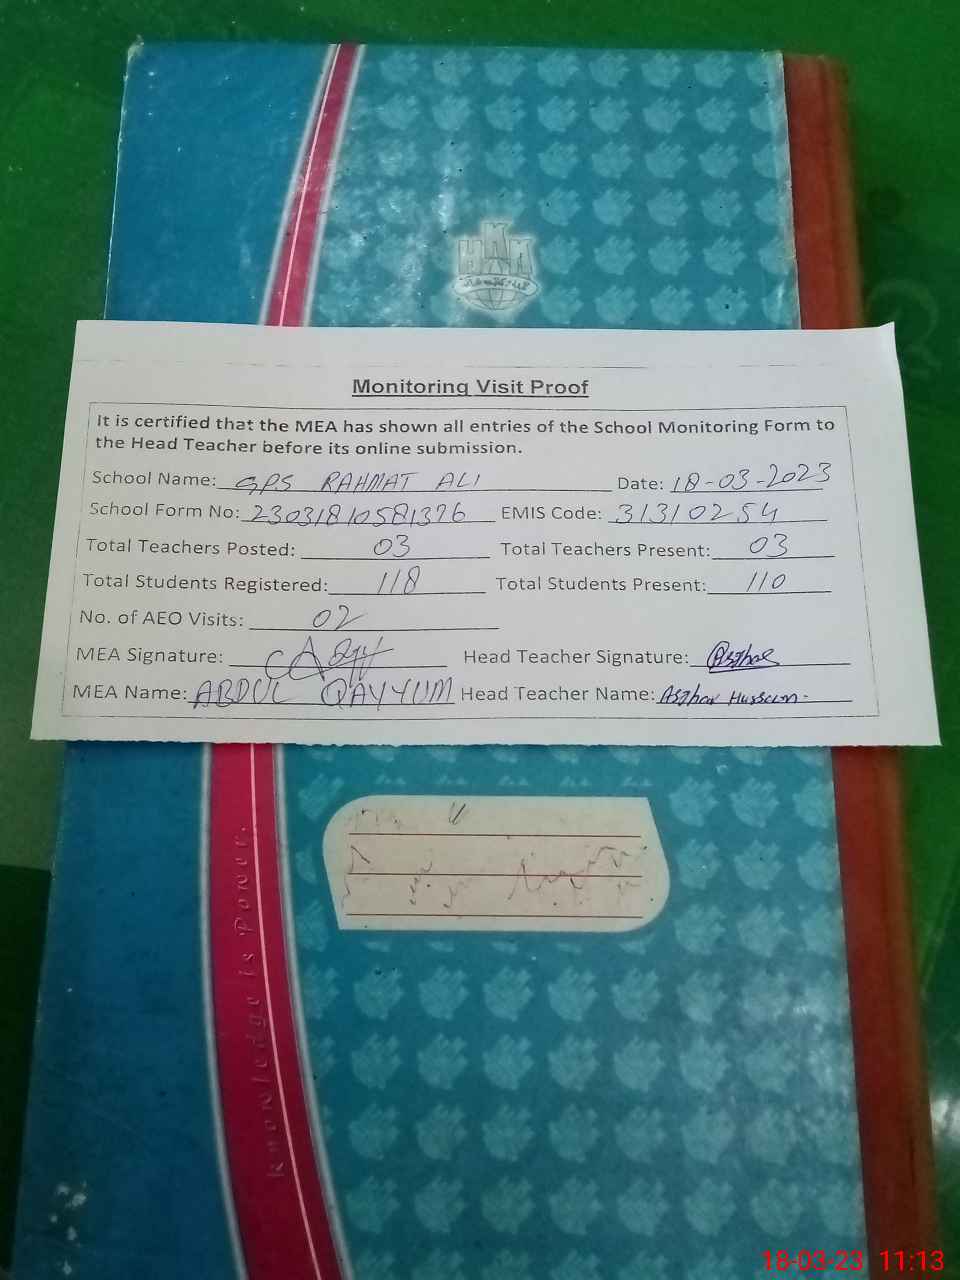 HKM
Monitoring Visit Proof
It is certified that the MEA has shown all entries of the School Monitoring Form to
the Head Teacher before its online submission.
School Name: GPS RAHMAT ALI Date: 18-03-2023
School Form No: 23031810581376 EMIS Code: 31310254
Total Teachers Posted: 03 Total Teachers Present: 03
Total Students Registered: 118 Total Students Present: 110
No. of AEO Visits: 02
MEA Signature: Head Teacher Signature: Asghar
MEA Name: ABDUL QAYYUM Head Teacher Name: Asghar Hussain
Knowledge is Power.
18-03-23 11:13